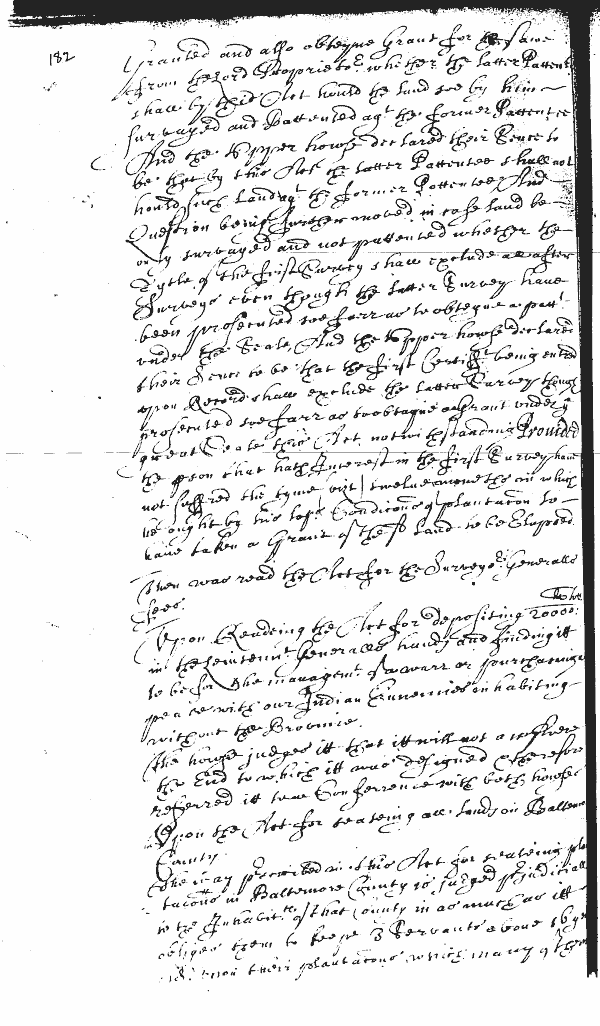 182
Granted and also obteyne Grant for the same
from the Lord Proprietor whether the latter Pattent
shall by this Act hould the land soe by him
surveyed and Pattented agt the former Pattentee
And the Upper howse declared their Sence to
be that by this Act the latter Pattentee shall not
hould such Land agt the former Pattentee And
Question being further moved in case land be
only surveyed and not pattented whether the
Tytle of the first Survey shall exclude all after
Surveys even though the latter Survey have
been prosecuted soe farr as to obteyne a patt
under the Seale, And the Upper howse declared
their Sence to be that the first Certift being entred
upon Record shall exclude the latter Survey though
prosecuted soe farr as to obtayne a Grant under ye
great Seale this Act notwithstanding Provided
the pson that hath Interest in the first Survey have
not suffred the tyme vizt twelve moneths in which
he ought by his Lops Condicons of plantacon to
have taken a Grant of the sd Land to be Elapsed
Then was read the Act for the Surveyor Generalls
fees.
Upon Readeing the Act for depositing 20000
in the Leiutennt Generalls hands and finding itt
to be for the managemt of a warr or purchaseing
peace with our Indian Ennemies inhabiting
without the Province.
The howse judges itt that itt will not answere
the End to which itt was designed & therefore
referred itt to a Conference with both howses
Upon the Act for seateing all lands in Baltemo
County
The way pscribed in this Act for seateing pla
tacons in Baltemore County is judged pjudiciall
to the Inhabitts of that County in as much as itt
obliges them to keepe 3 Servants above 16 ye
upon their plantacons which many of them